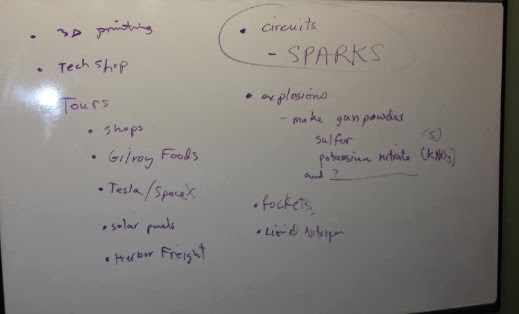 • 3D printing
• Tech Shop
Tours
• shops
• Gilroy Foods
• Tesla/SpaceX
• solar panels
• Harbor Freight
• circuits
- SPARKS
• explosions
- make gunpowder
sulfur (S)
potassium nitrate (KNO3)
and ?
• Rockets
• Liquid Nitrogen